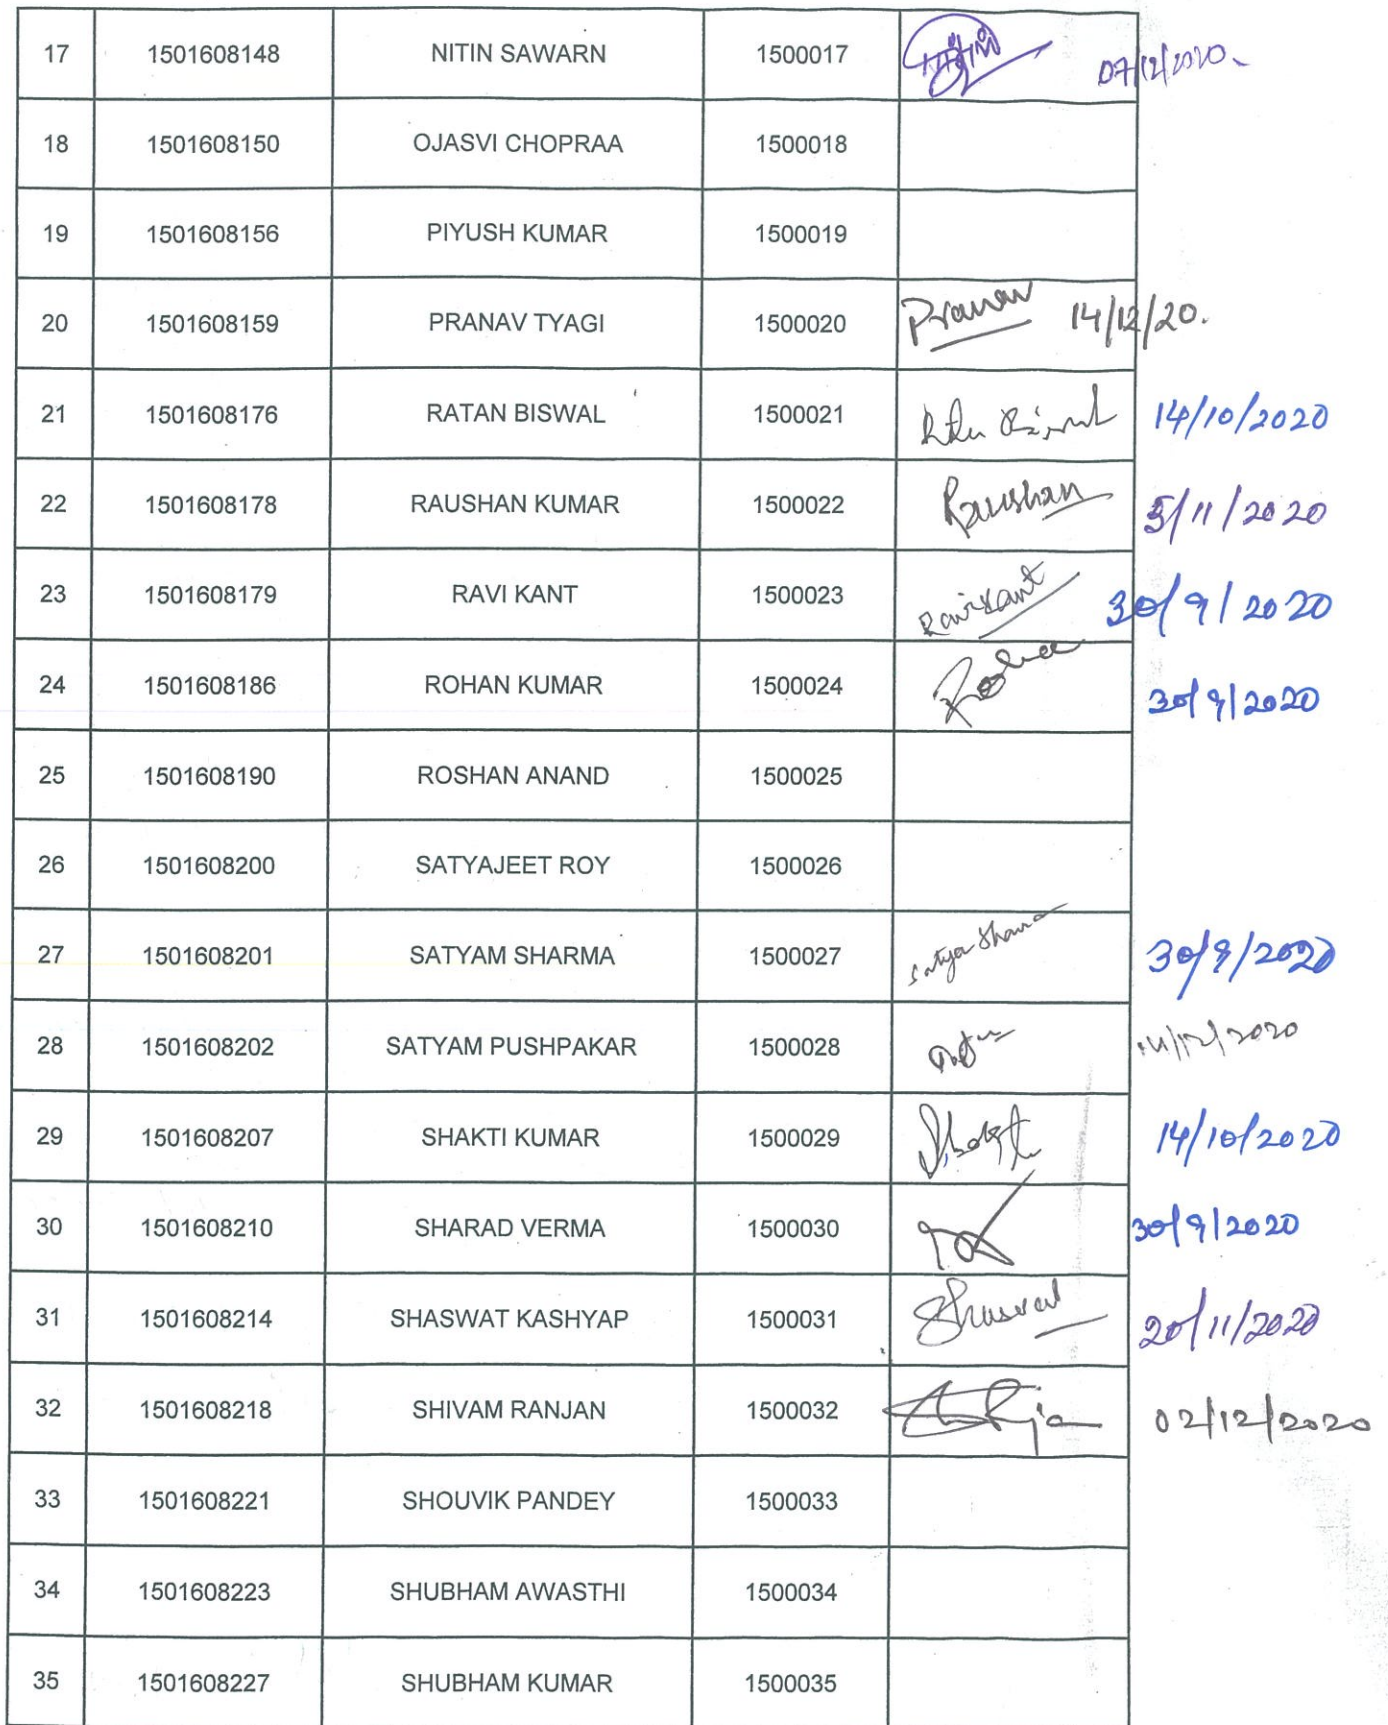 17 1501608148 NITIN SAWARN 1500017 07/12/2020.
18 1501608150 OJASVI CHOPRAA 1500018
19 1501608156 PIYUSH KUMAR 1500019
20 1501608159 PRANAV TYAGI 1500020 Pranav 14/12/20.
21 1501608176 RATAN BISWAL 1500021 14/10/2020
22 1501608178 RAUSHAN KUMAR 1500022 Raushan 5/11/2020
23 1501608179 RAVI KANT 1500023 Ravikant 30/9/2020
24 1501608186 ROHAN KUMAR 1500024 30/9/2020
25 1501608190 ROSHAN ANAND 1500025
26 1501608200 SATYAJEET ROY 1500026
27 1501608201 SATYAM SHARMA 1500027 30/9/2020
28 1501608202 SATYAM PUSHPAKAR 1500028
29 1501608207 SHAKTI KUMAR 1500029 14/10/2020
30 1501608210 SHARAD VERMA 1500030 30/9/2020
31 1501608214 SHASWAT KASHYAP 1500031 20/11/2020
32 1501608218 SHIVAM RANJAN 1500032 02/12/2020
33 1501608221 SHOUVIK PANDEY 1500033
34 1501608223 SHUBHAM AWASTHI 1500034
35 1501608227 SHUBHAM KUMAR 1500035